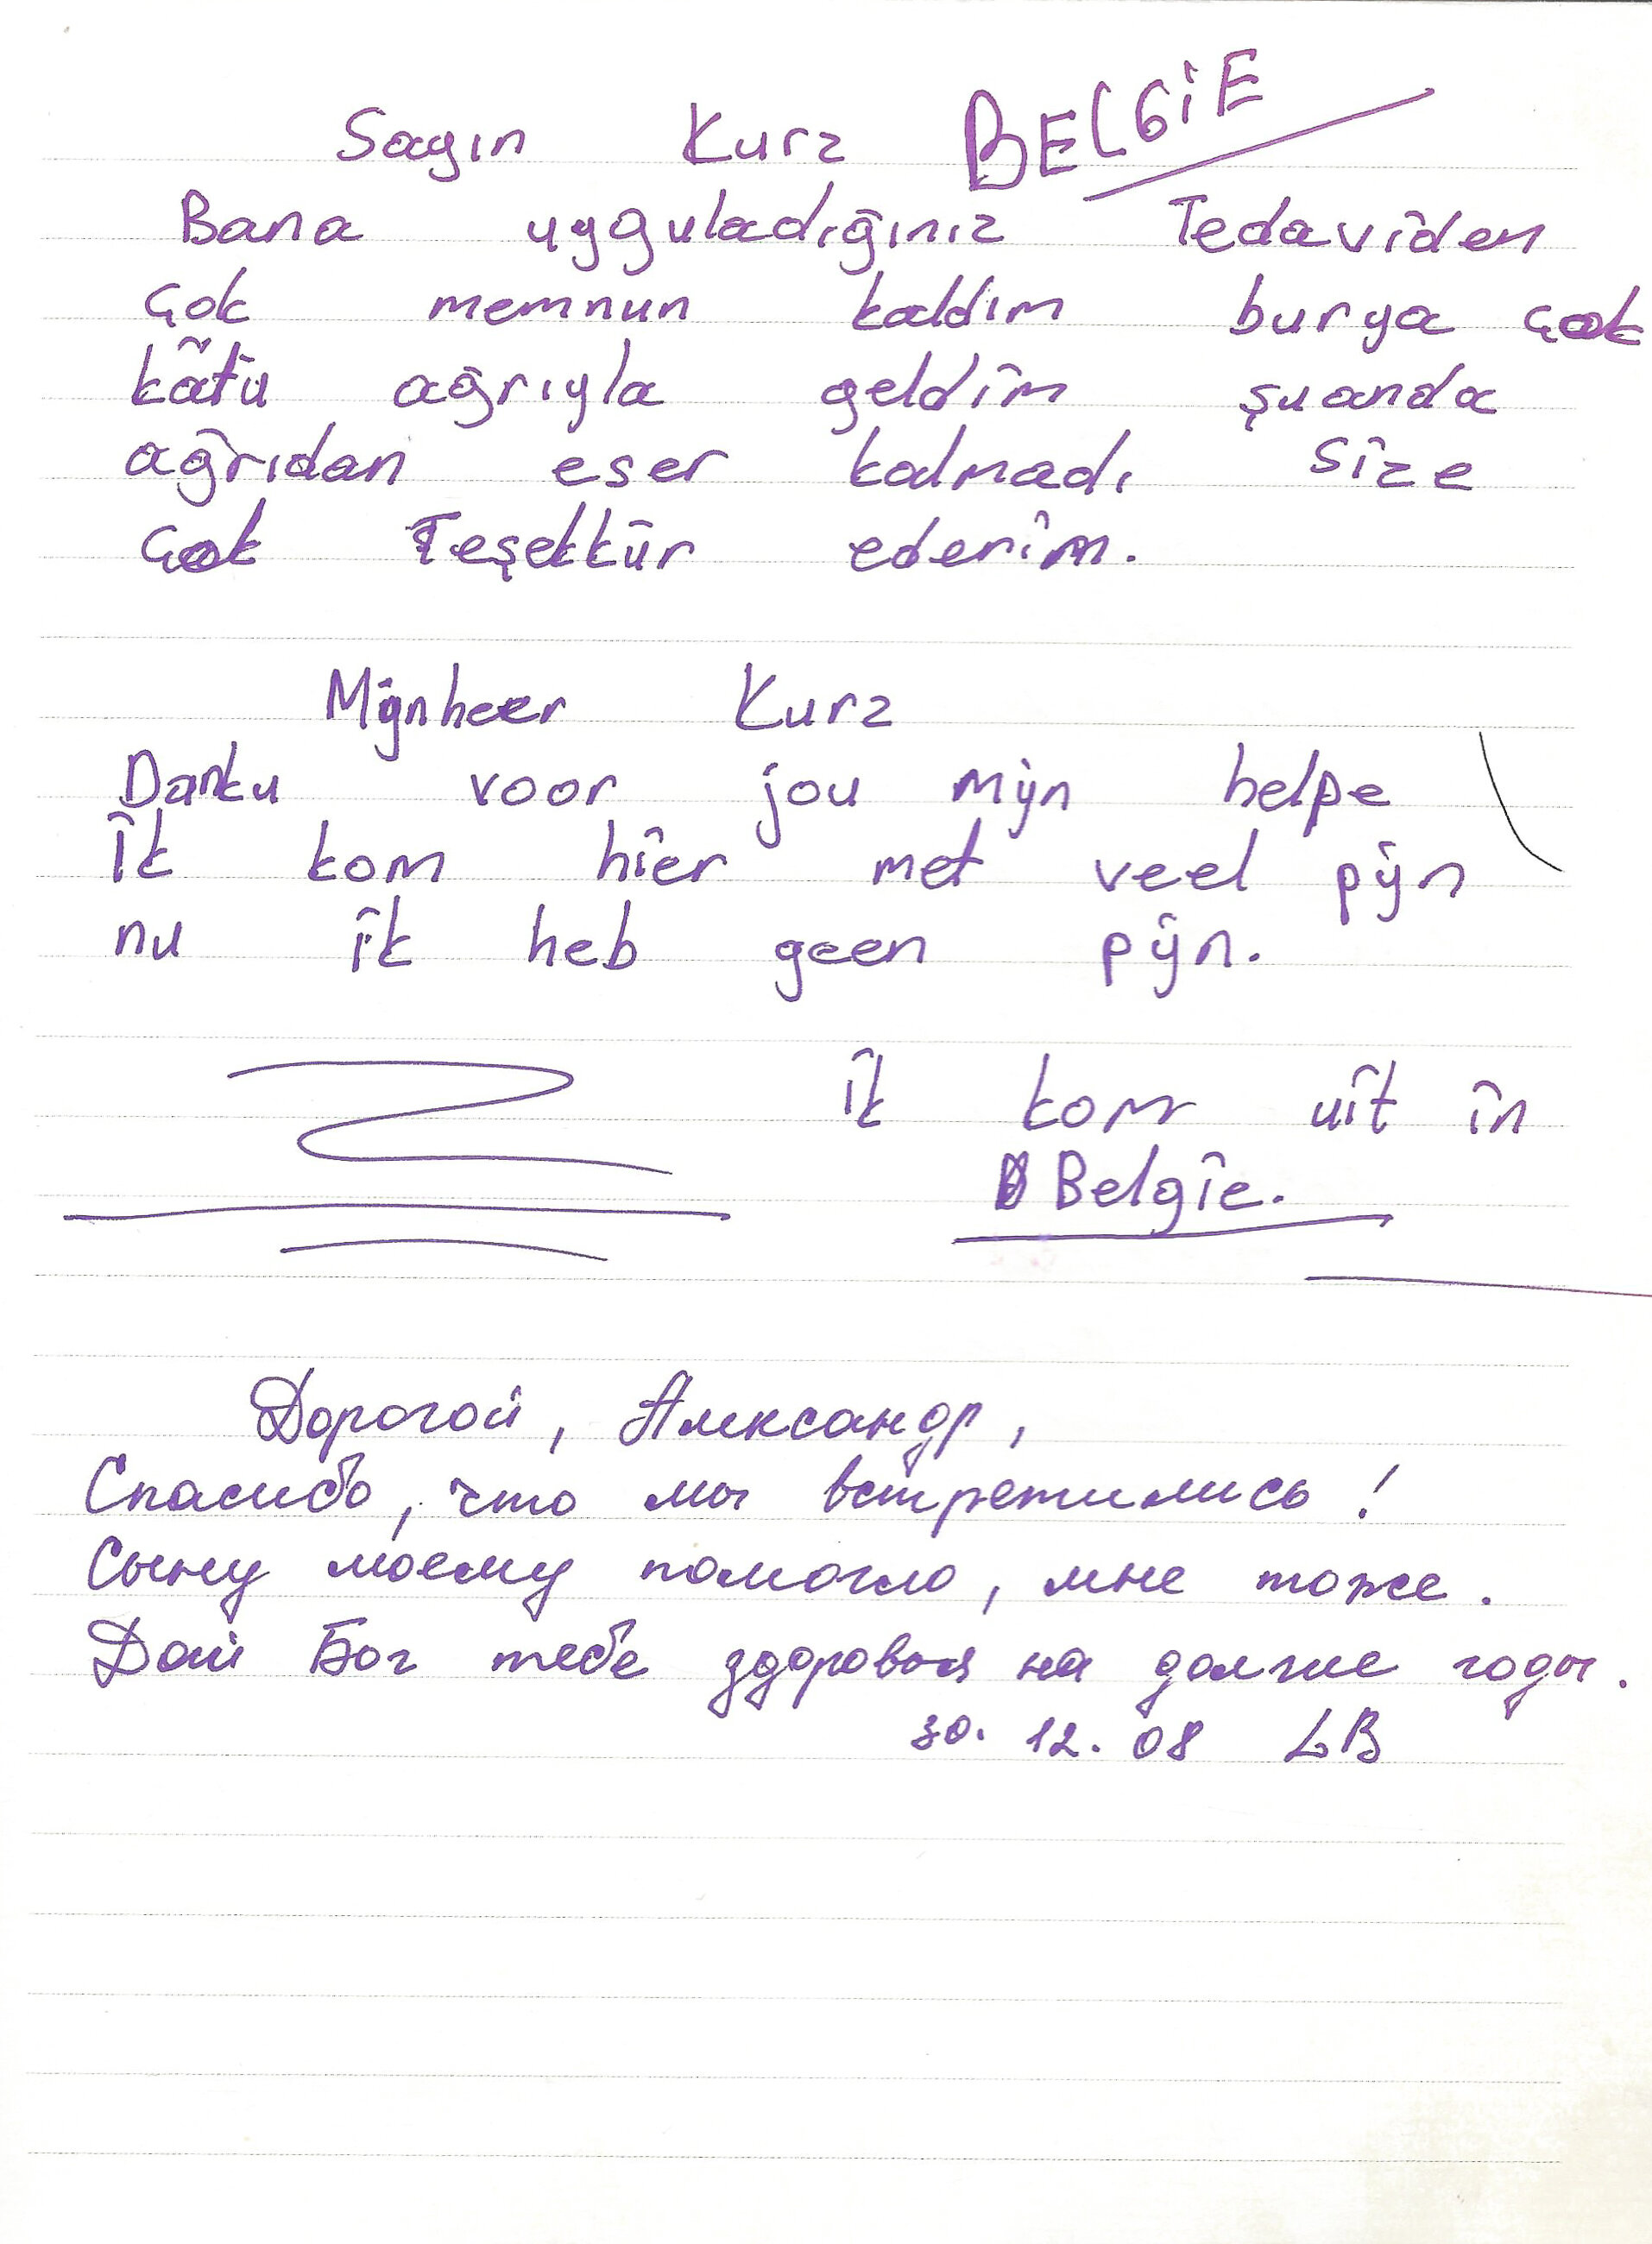 Sayın Kurz BELGiE
Bana uyguladığınız Tedaviden
çok memnun kaldım burya çok
kötü ağrıyla geldim şuanda
ağrıdan eser kalmadı size
çok Teşekkür ederim.
Mijnheer Kurz
Danku voor jou mijn helpe
ik kom hier met veel pijn
nu ik heb geen pijn.
ik kom uit in
Belgie.
Дорогой, Александр,
Спасибо, что мы встретились!
Сыну моему помогло, мне тоже.
Дай Бог тебе здоровья на долгие годы.
30. 12. 08 LB